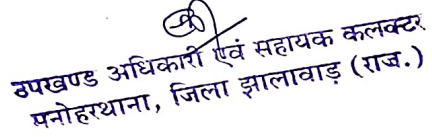 उपखण्ड अधिकारी एवं सहायक कलक्टर
मनोहरथाना, जिला झालावाड़ (राज.)